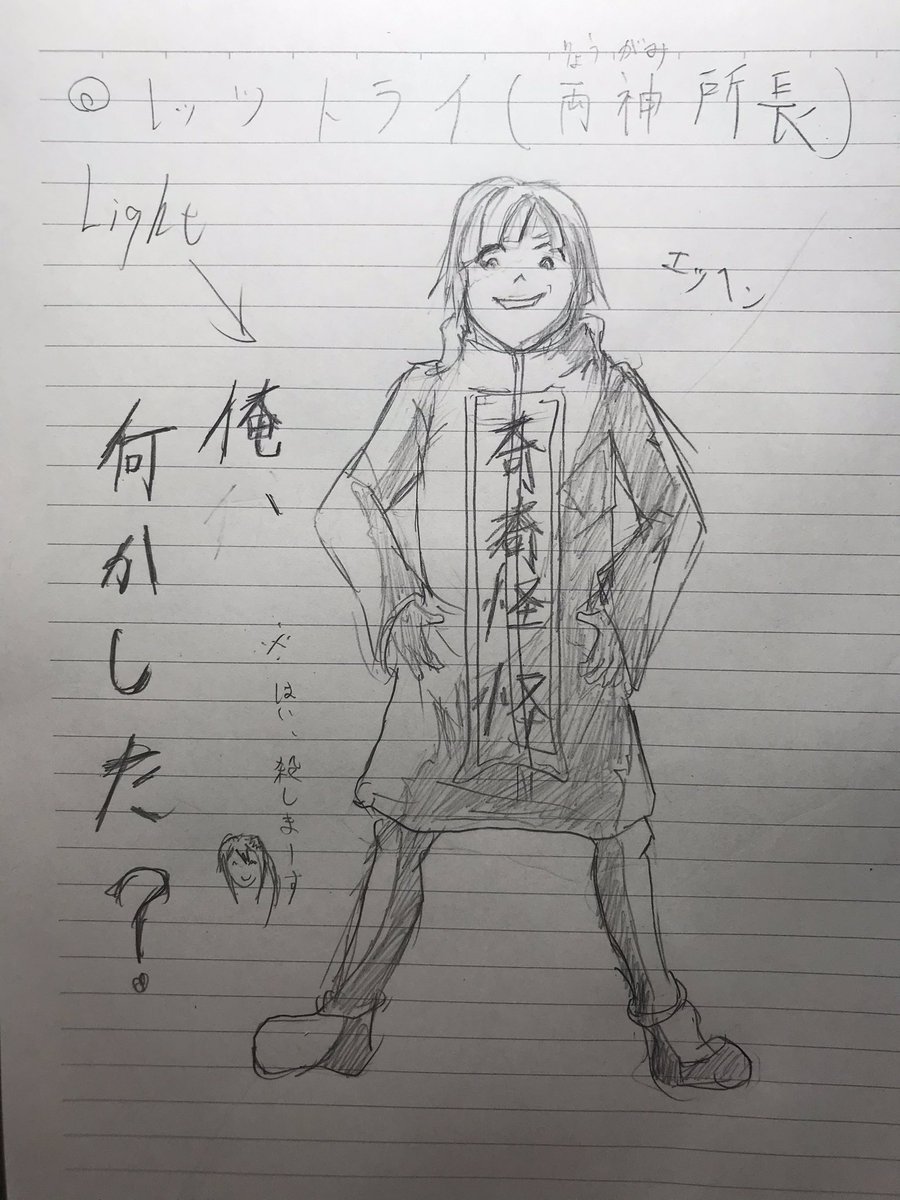 りょうがみ
@レッツトライ(両神所長)
Light
エッヘン
俺、
何かした?
奇奇怪怪
※はい、殺しまーす